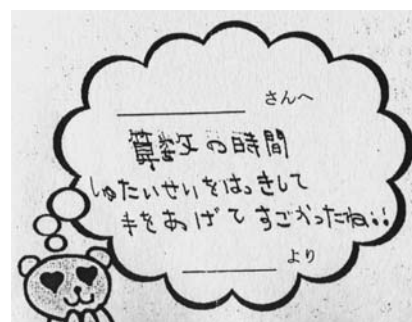 さんへ
算数の時間
しゅたいせいをはっきして
手をあげてすごかったね!!
より